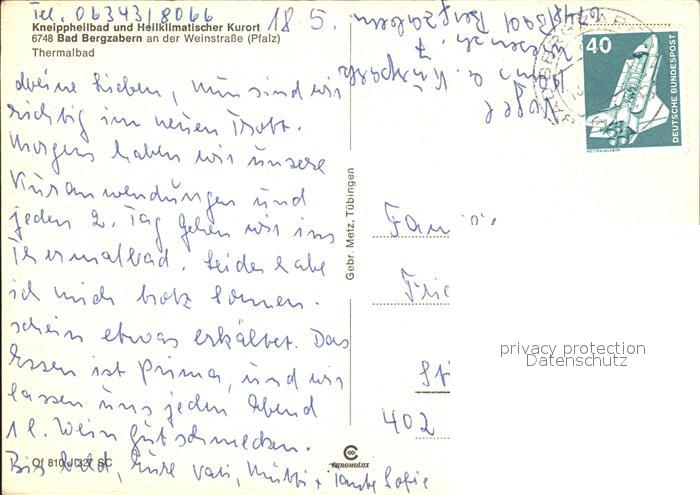 Tel. 06343/8066
18.5.
Kneippheilbad und Heilklimatischer Kurort
6748 Bad Bergzabern an der Weinstraße (Pfalz)
Thermalbad
Meine Lieben, Nun sind wir
richtig im neuen Trott.
Morgens haben wir unsere
Kuranwendungen und
jeden 2. Tag gehen wir ins
Thermalbad. Leider habe
ich mich trotz Sonnen-
schein etwas erkältet. Das
Essen ist Prima, und wir
lassen uns jeden Abend
1 l. Wein gut schmecken.
Bis bald, Eure Vati, Mutti + Tante Sofie
Of 810 J 327 SC
Gebr. Metz, Tübingen
CHROMOLUX
Vogel
Haus a. Kurpark
6748 Bad Bergzabern
40
DEUTSCHE BUNDESPOST
WELTRAUMLABOR
402
privacy protection
Datenschutz